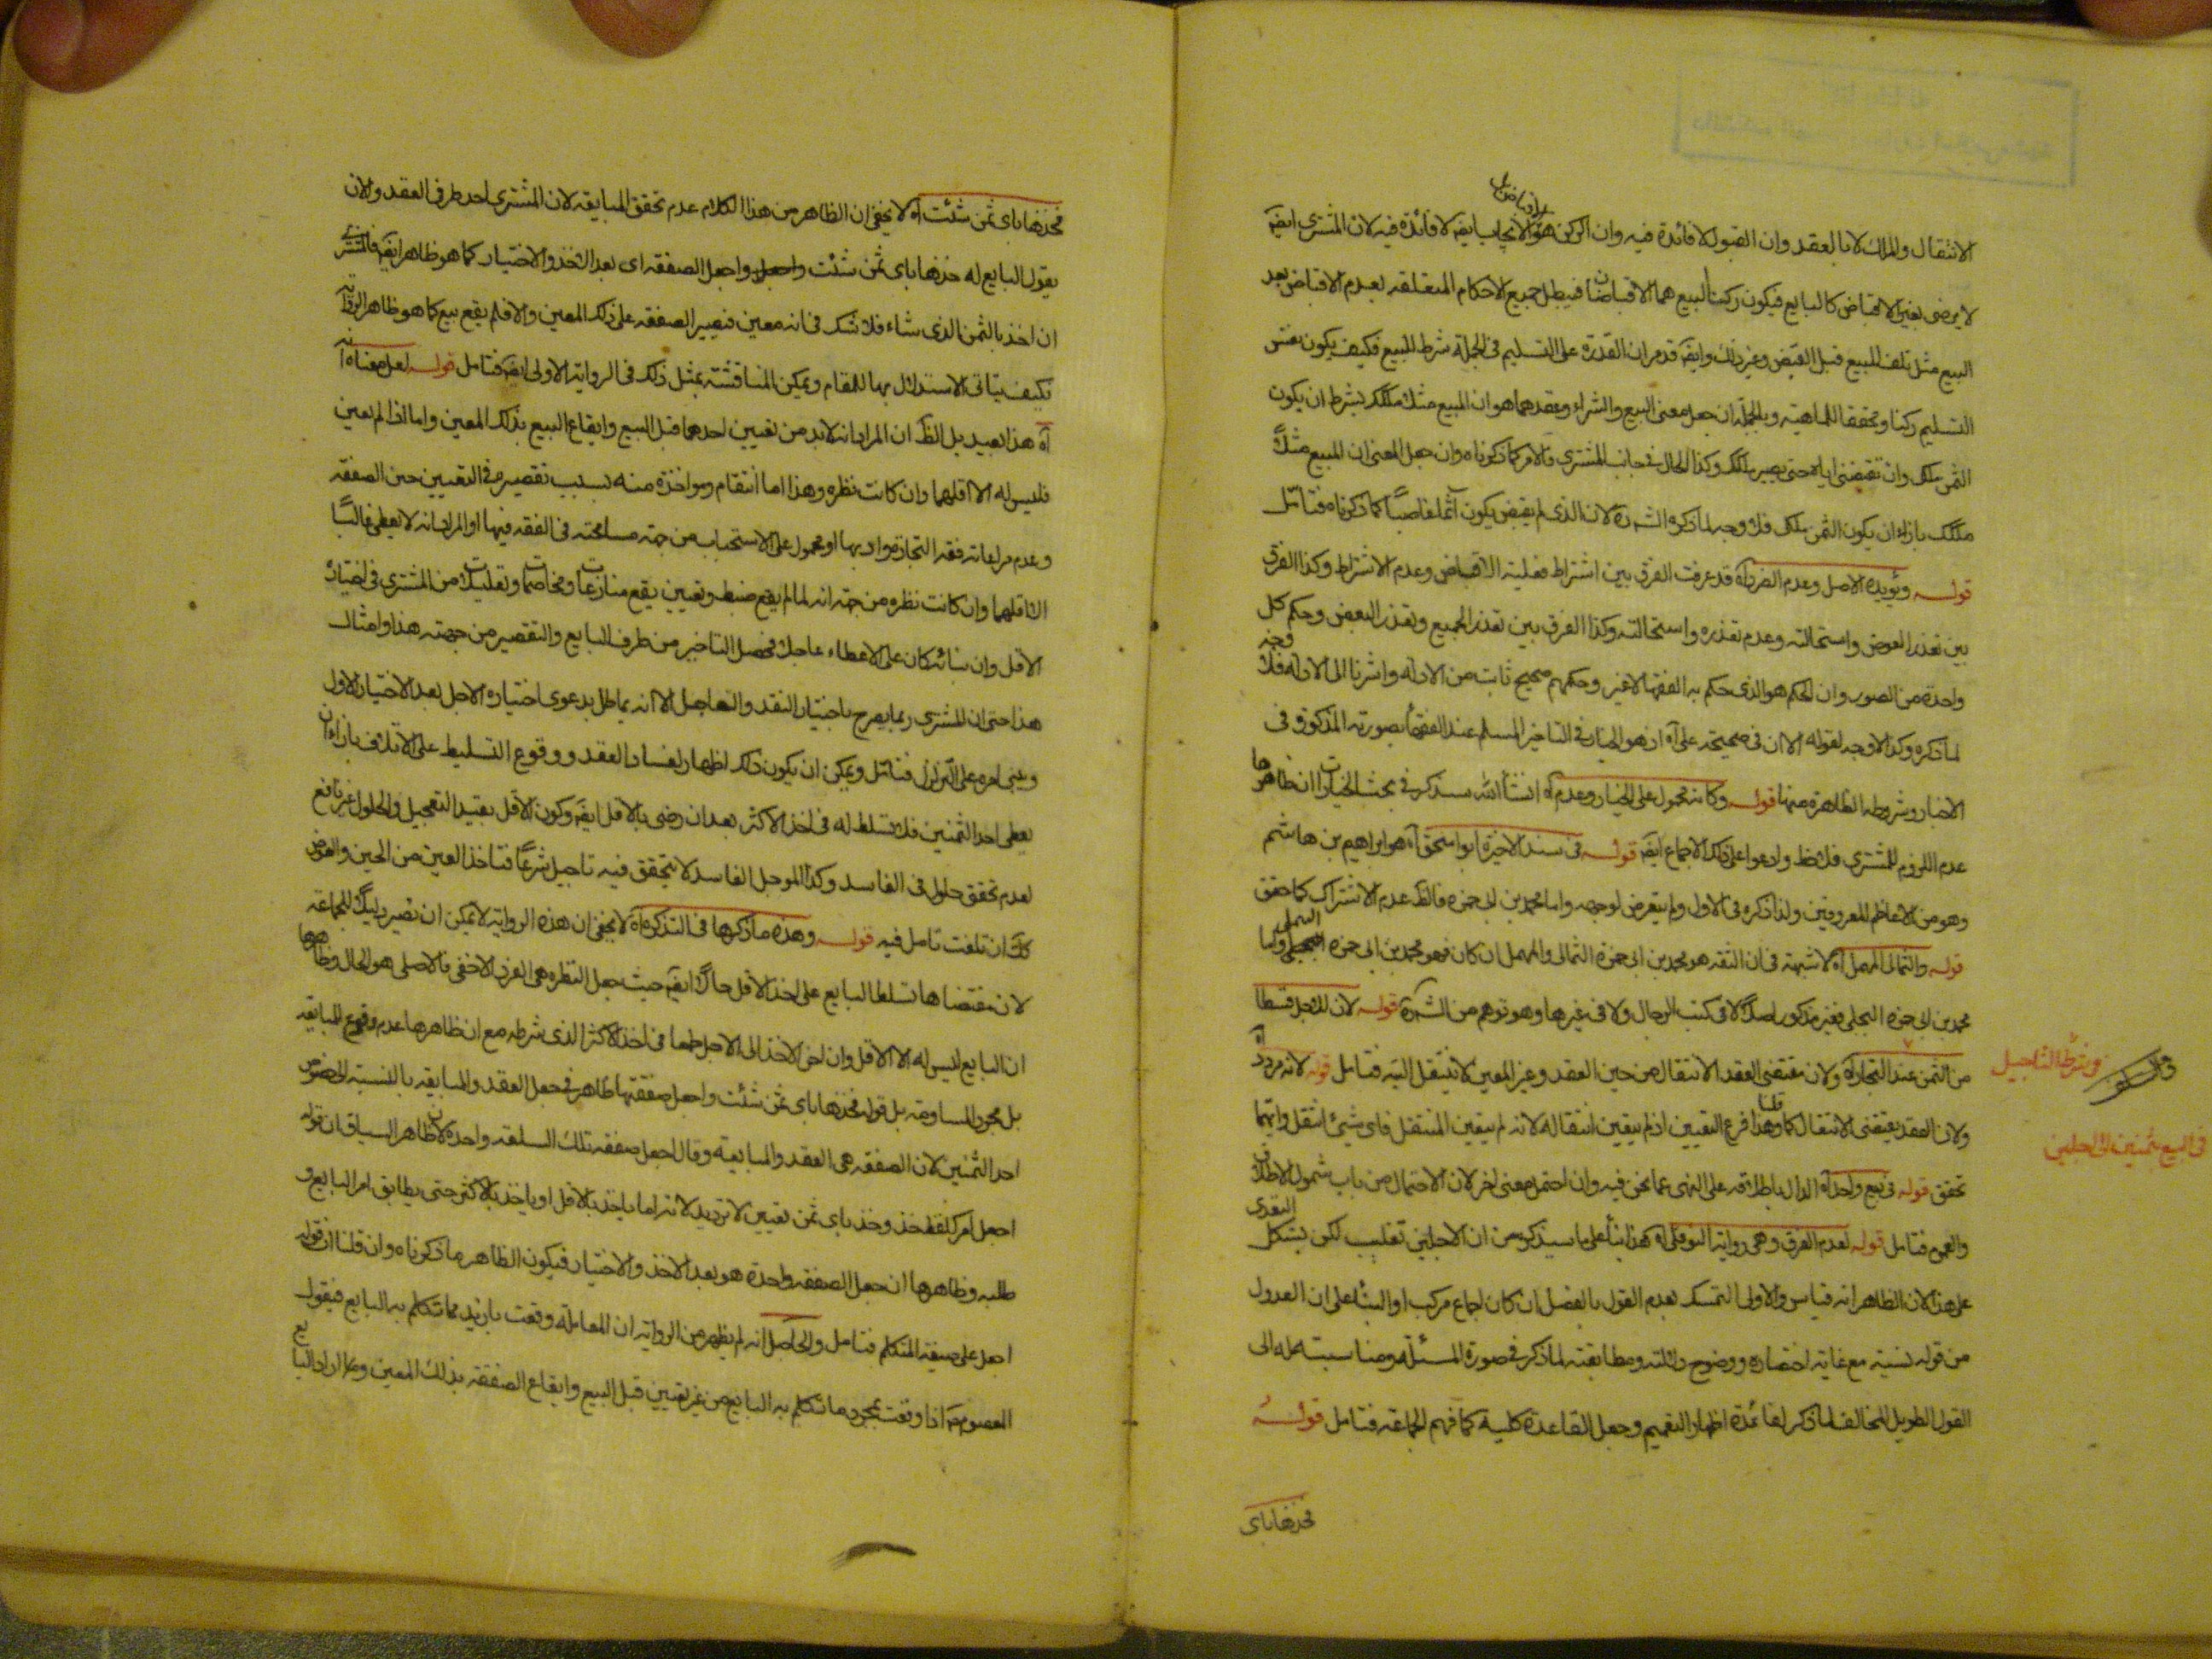 الانتقال والملك لا بالعقد وان القبول لا فائدة فيه وان الركن هو الايجاب ايضا لا فائدة فيه لان المشتري ايضا
لا يرضى بغير الاقباض كالبايع فيكون ركنا البيع هما الاقباضان فيبطل جميع الاحكام المتعلقة لعدم الاقباض بعد
البيع مثل تلف المبيع قبل القبض وغير ذلك وايضا قد مر ان القدرة على التسليم في الجملة شرط للبيع فكيف يكون نفس
التسليم ركنا ومحققا للماهية وبالجملة ان جعل معنى البيع والشراء وعقدهما هو ان المبيع مثلا ملكك بشرط ان يكون
الثمن ملكي وان تقبضني اياه حتى يصير ملكك وكذا الحال في جانب المشتري فالامر كما ذكرناه وان جعل المعنى ان المبيع مثلا
ملكك بازاء ان يكون الثمن ملكي فلا وجه لما ذكره الشارح لان الذي لم يقبض يكون آثما غاصبا كما ذكرناه فتأمل
قوله ويؤيده الاصل وعدم الضرر آه قد عرفت الفرق بين اشتراط فعلية الاقباض وعدم الاشتراط وكذا الفرق
بين تعذر العوض واستحالته وعدم تعذره واستحالته وكذا الفرق بين تعذر الجميع وتعذر البعض وحكم كل
واحدة من الصور وان الحكم هو الذي حكم به الفقهاء لا غير وحكمهم صحيح ثابت من الادلة واشرنا الى الادلة فلا وجه
لما ذكره وكذا لا وجه لقوله الا ان في صحيحة علي آه اذ هو الخيار في التاخير المسلم عند الفقهاء بصورته المذكورة في
الاخبار وشروطه الظاهرة منها قوله وكانه محمول على الخيار وعدم آه انشاء الله سنذكر في بحث الخيارات ان ظاهرها
عدم اللزوم للمشتري فلاحظ وادعوا على ذلك الاجماع ايضا قوله في سند الاخيرة ابو اسحق آه هو ابراهيم بن هاشم
وهو من الاعاظم المعروفين ولذا ذكره في الاول ولم يتعرض لوجهه واما محمد بن ابي حمزة فالظ عدم الاشتراك كما حقق
قوله والثمالي المهمل آه لا شبهة في ان الثقة هو محمد بن ابي حمزة الثمالي والمهمل ان كان فهو محمد بن ابي حمزة التيملي واما
محمد بن ابي حمزة البجلي فغير مذكور اصلا لا في كتب الرجال ولا في غيرها وهو توهم من الشارح قوله لان للاجل قسطا
من الثمن عند التجار آه ولان مقتضى العقد الانتقال من حين العقد وغير المعين لا ينتقل اليه فتامل قوله لانه مردد آه
ولان العقد يقتضي الانتقال كما قلنا وهذا فرع التعيين اذ لم يتعين انتقاله لانه لم يتعين المنتقل فاي شيئ انتقل وايهما
تحقق قوله في بيع واحد آه الدال باطلاقه على النهي عما نحن فيه وان احتمل معنى اخر لان الاحتمال من باب شمول الاطلاق
والعموم فتامل قوله لعدم الفرق وهي رواية النوفلي آه هذا بناء على ما سيذكره من ان الاجلين تغليب النقدي لكن يشكل
على هذا لان الظاهر انه قياس والاولى التمسك بعدم القول بالفصل ان كان اجماع مركب او البناء على ان العدول
من قوله نسيئة مع غاية اختصاره ووضوح دلالته ومطابقته لما ذكر في صورة المسئلة ومناسبته له الى
القول الطويل المخالف لما ذكر لفائدة اظهار التعميم وجعل القاعدة كلية كما فهم الجماعة فتامل قوله
فخذها باي
ولو شرط التاجيل
في البيع بثمنين الى اجلين
فخذها باي ثمن شئت آه لا يخفى ان الظاهر من هذا الكلام عدم تحقق المبايعة لان المشتري احد طرفي العقد ولان
يقول البايع له خذها باي ثمن شئت واجعل الصفقة اي بعد الاخذ والاختيار كما هو ظاهر ايضا فالمشتري
ان اخذ بالثمن الذي شاء فلا شك في انه معين فيصير الصفقة على ذلك المعين والا فلم يقع بيع كما هو ظاهر الرواية
فكيف يتاتى الاستدلال بها للمقام ويمكن المناقشة بمثل ذلك في الرواية الاولى ايضا فتامل قوله لعل معناه انه
آه هذا بعيد بل الظ ان المراد انه لا بد من تعيين احدهما قبل البيع وايقاع البيع بذلك المعين واما اذا لم يعين
فليس له الا اقلهما وان كانت نظرة وهذا اما انتقام ومواخذة منه بسبب تقصيره في التعيين حين الصفقة
وعدم مراعاته فقه التجارة وادبها او محمول على الاستحباب من جهة مسامحته في الفقه فيها او المراد انه لا يعطى غالبا
الا اقلهما وان كانت نظرة من جهة انه لما لم يقع ضبط وتعيين يقع منازعات ومخاصمات وتقلبات من المشتري في اختيار
الاقل وان بنائه كان على الاعطاء عاجلا فحصل التاخير من طرف البايع والتقصير من جهته هذا وامثال
هذا حتى ان المشتري ربما يصرح باختيار النقد والتعاجل الا انه يماطل بدعوى اختياره الاجل بعد الاختيار الاول
ويبني امره على التزلزل فتامل ويمكن ان يكون ذلك اظهارا لفساد العقد ووقوع التسليط على الاتلاف بازاء ان
يعطي احد الثمنين فلا تسلط له في اخذ الاكثر بعد ان رضي بالاقل ايضا وكون الاقل بقيد التعجيل والحلول غير نافع
لعدم تحقق حلول في الفاسد وكذا الموجل الفاسد لا يتحقق فيه تاجيل شرعا فتاخذ العين من الحين والعوض
كك ان تلفت تامل فيه قوله وهذه ما ذكرها في التذكرة آه لا يخفى ان هذه الرواية لا يمكن ان تصير دليلا للجماعة
لان مقتضاها تسلط البايع على اخذ الاقل حالا ايضا حيث جعل النظرة هي الفرد الاخفى فالاصلي هو الحال وظاهرها
ان البايع ليس له الا الاقل وان اخر الاخذ الى الاجل طمعا في اخذ الاكثر الذي شرطه مع ان ظاهرها عدم وقوع المبايعة
بل مجرد المساومة بل قوله فخذها باي ثمن شئت واجعل صفقتها ظاهر في جعل العقد والمبايعة بالنسبة الى خصوص
احد الثمنين لان الصفقة هي العقد والمبايعة وقال اجعل صفقة تلك السلعة واحدة لان ظاهر السياق ان قوله
اجعل امر كلفظ خذ وخذ باي ثمن تعيين لا ترديد لانه اما ياخذ بالاقل او ياخذ بالاكثر حتى يطابق امر البايع و
طلبه وظاهرها ان جعل الصفقة واحدة هو بعد الاخذ والاختيار فيكون الظاهر ما ذكرناه وان قلنا ان قوله
اجعل على صيغة المتكلم فتامل والحاصل انه لم يظهر من الرواية ان المعاملة وقعت بازيد مما تكلم به البايع فيقول
المعصوم ع اذا وقعت بمجرد ما تكلم به البايع من غير تعيين قبل البيع وايقاع الصفقة بذلك المعين وما اراد البايع